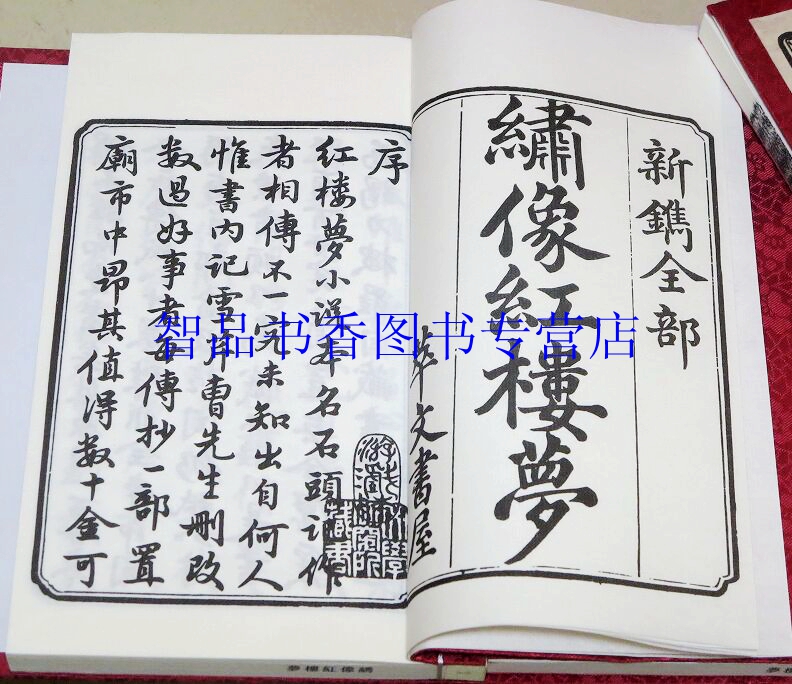 新鐫全部
繡像紅樓夢
萃文書屋
序
紅樓夢小說本名石頭記作
者相傳不一究未知出自何人
惟書内記雪芹曹先生刪改
数過好事者每傳抄一部置
廟市中昂其值得数十金可
智品书香图书专营店
夢樓紅像繡